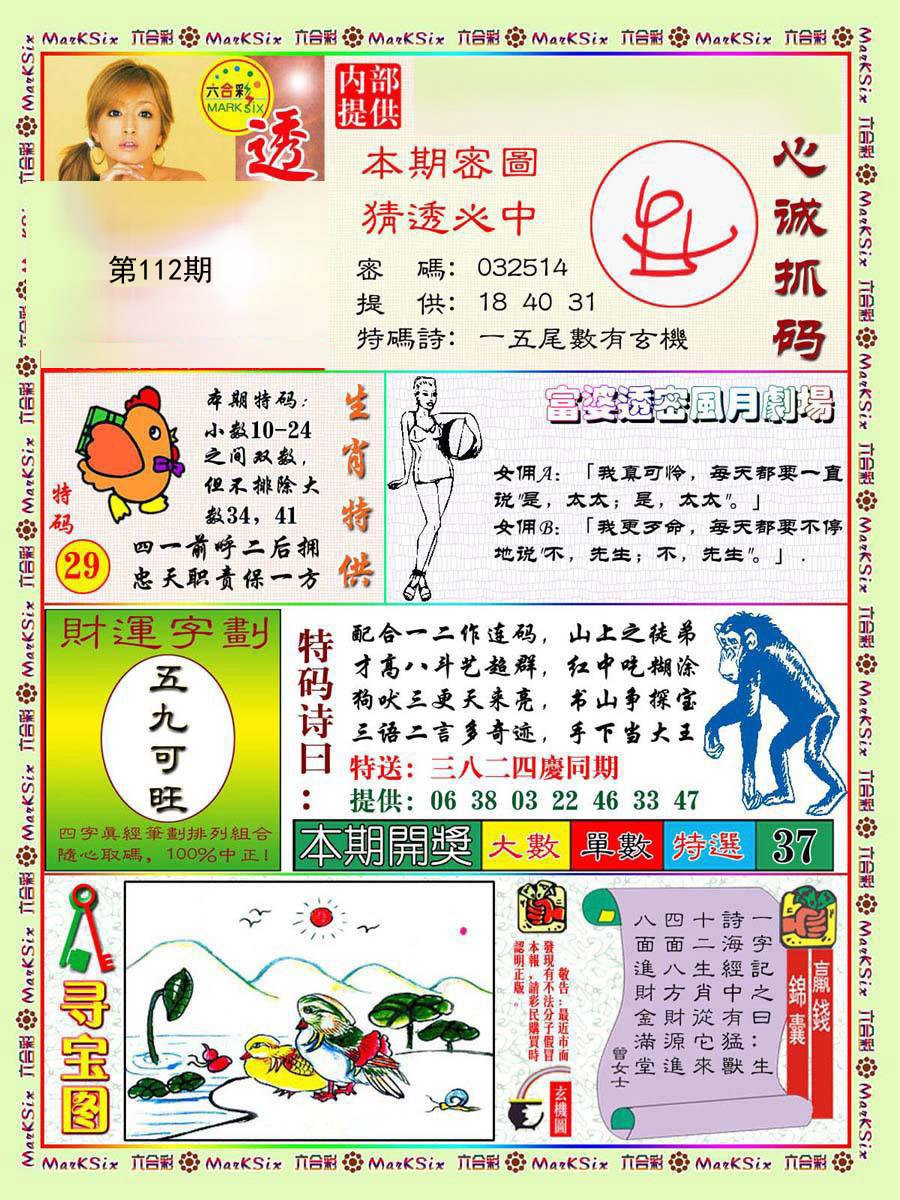 MarKSix 六合彩 MarKSix 六合彩 MarKSix 六合彩 MarKSix 六合彩 MarKSix 六合彩
六合彩
MARK SIX
透
第112期
内部
提供
本期密圖
猜透必中
密 碼: 032514
提 供: 18 40 31
特碼詩: 一五尾數有玄機
心诚抓码
特码
29
本期特码:
小数10-24
之间双数,
但不排除大
数34, 41
四一前呼二后拥
忠天职责保一方
生肖特供
富婆透密風月劇場
女佣A: 「我真可怜, 每天都要一直
说"是, 太太; 是, 太太"。」
女佣B: 「我更歹命, 每天都要不停
地说"不, 先生; 不, 先生"。」.
財運字劃
五九可旺
四字真經筆劃排列組合
隨心取碼, 100%中正!
特码诗曰:
配合一二作连码, 山上之徒弟
才高八斗艺超群, 红中吃糊涂
狗吠三更天来亮, 书山争探宝
三语二言多奇迹, 手下当大王
特送: 三八二四慶同期
提供: 06 38 03 22 46 33 47
本期開獎 大數 單數 特選 37
寻宝图
敬告:最近市面
發現有不法分子假冒
本報,請彩民購買時
認明正版。
玄機圖
贏錢
錦囊
一字記之曰:生
詩海經中有猛獸
十二生肖從它來
四面八方財源進
八面進財金滿堂
曾女士
MarKSix 六合彩 MarKSix 六合彩 MarKSix 六合彩 MarKSix 六合彩 MarKSix 六合彩